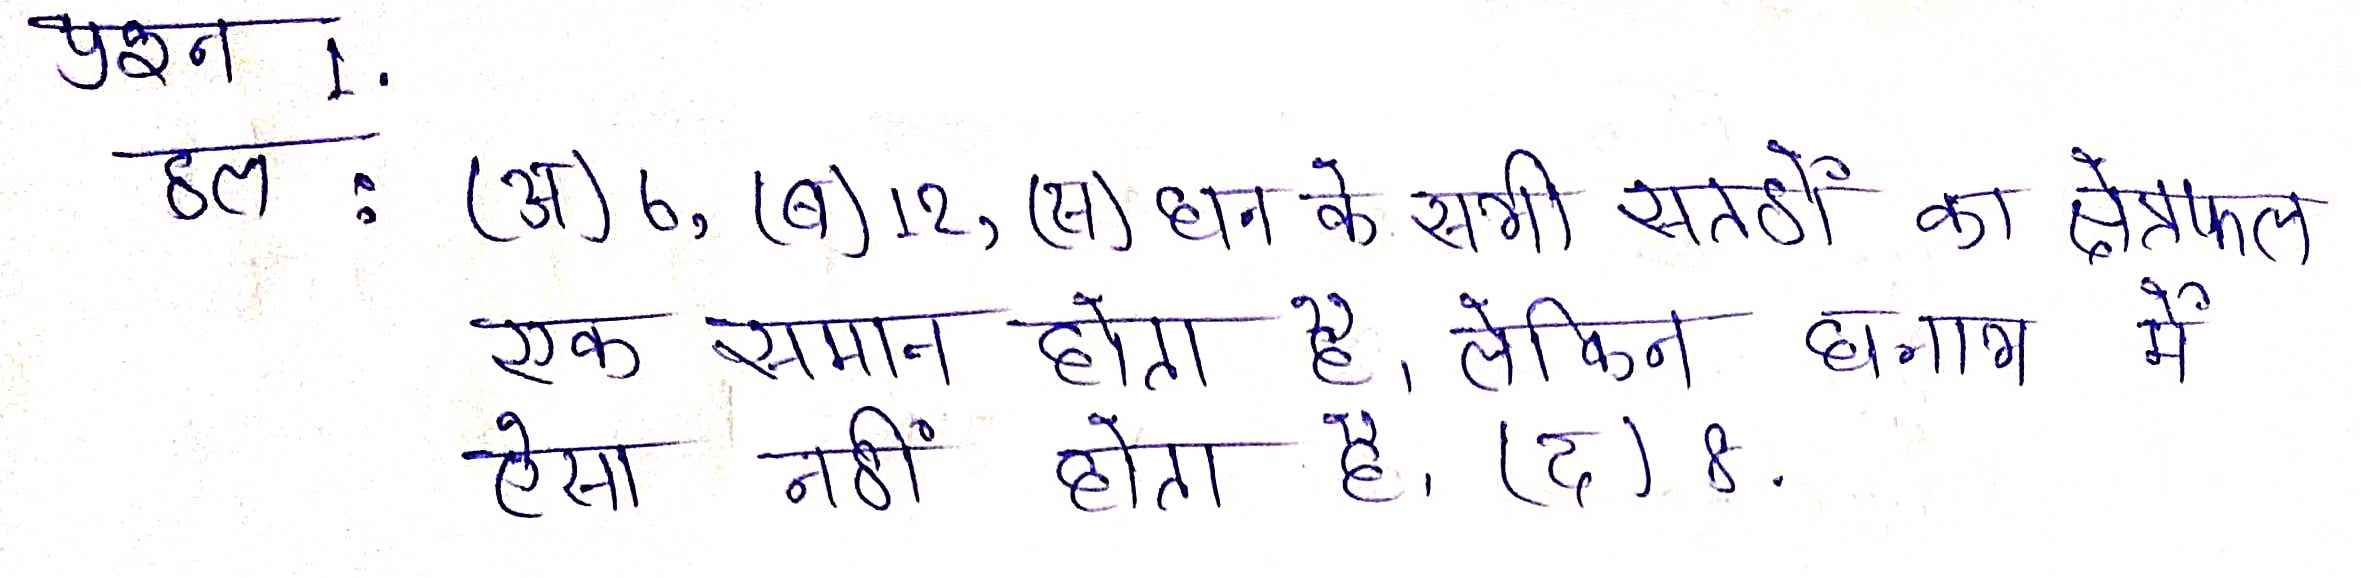 प्रश्न 1.
हल : (अ) 6, (ब) 12, (स) घन के सभी सतहों का क्षेत्रफल
एक समान होता है, लेकिन घनाभ में
ऐसा नहीं होता है, (द) 8.